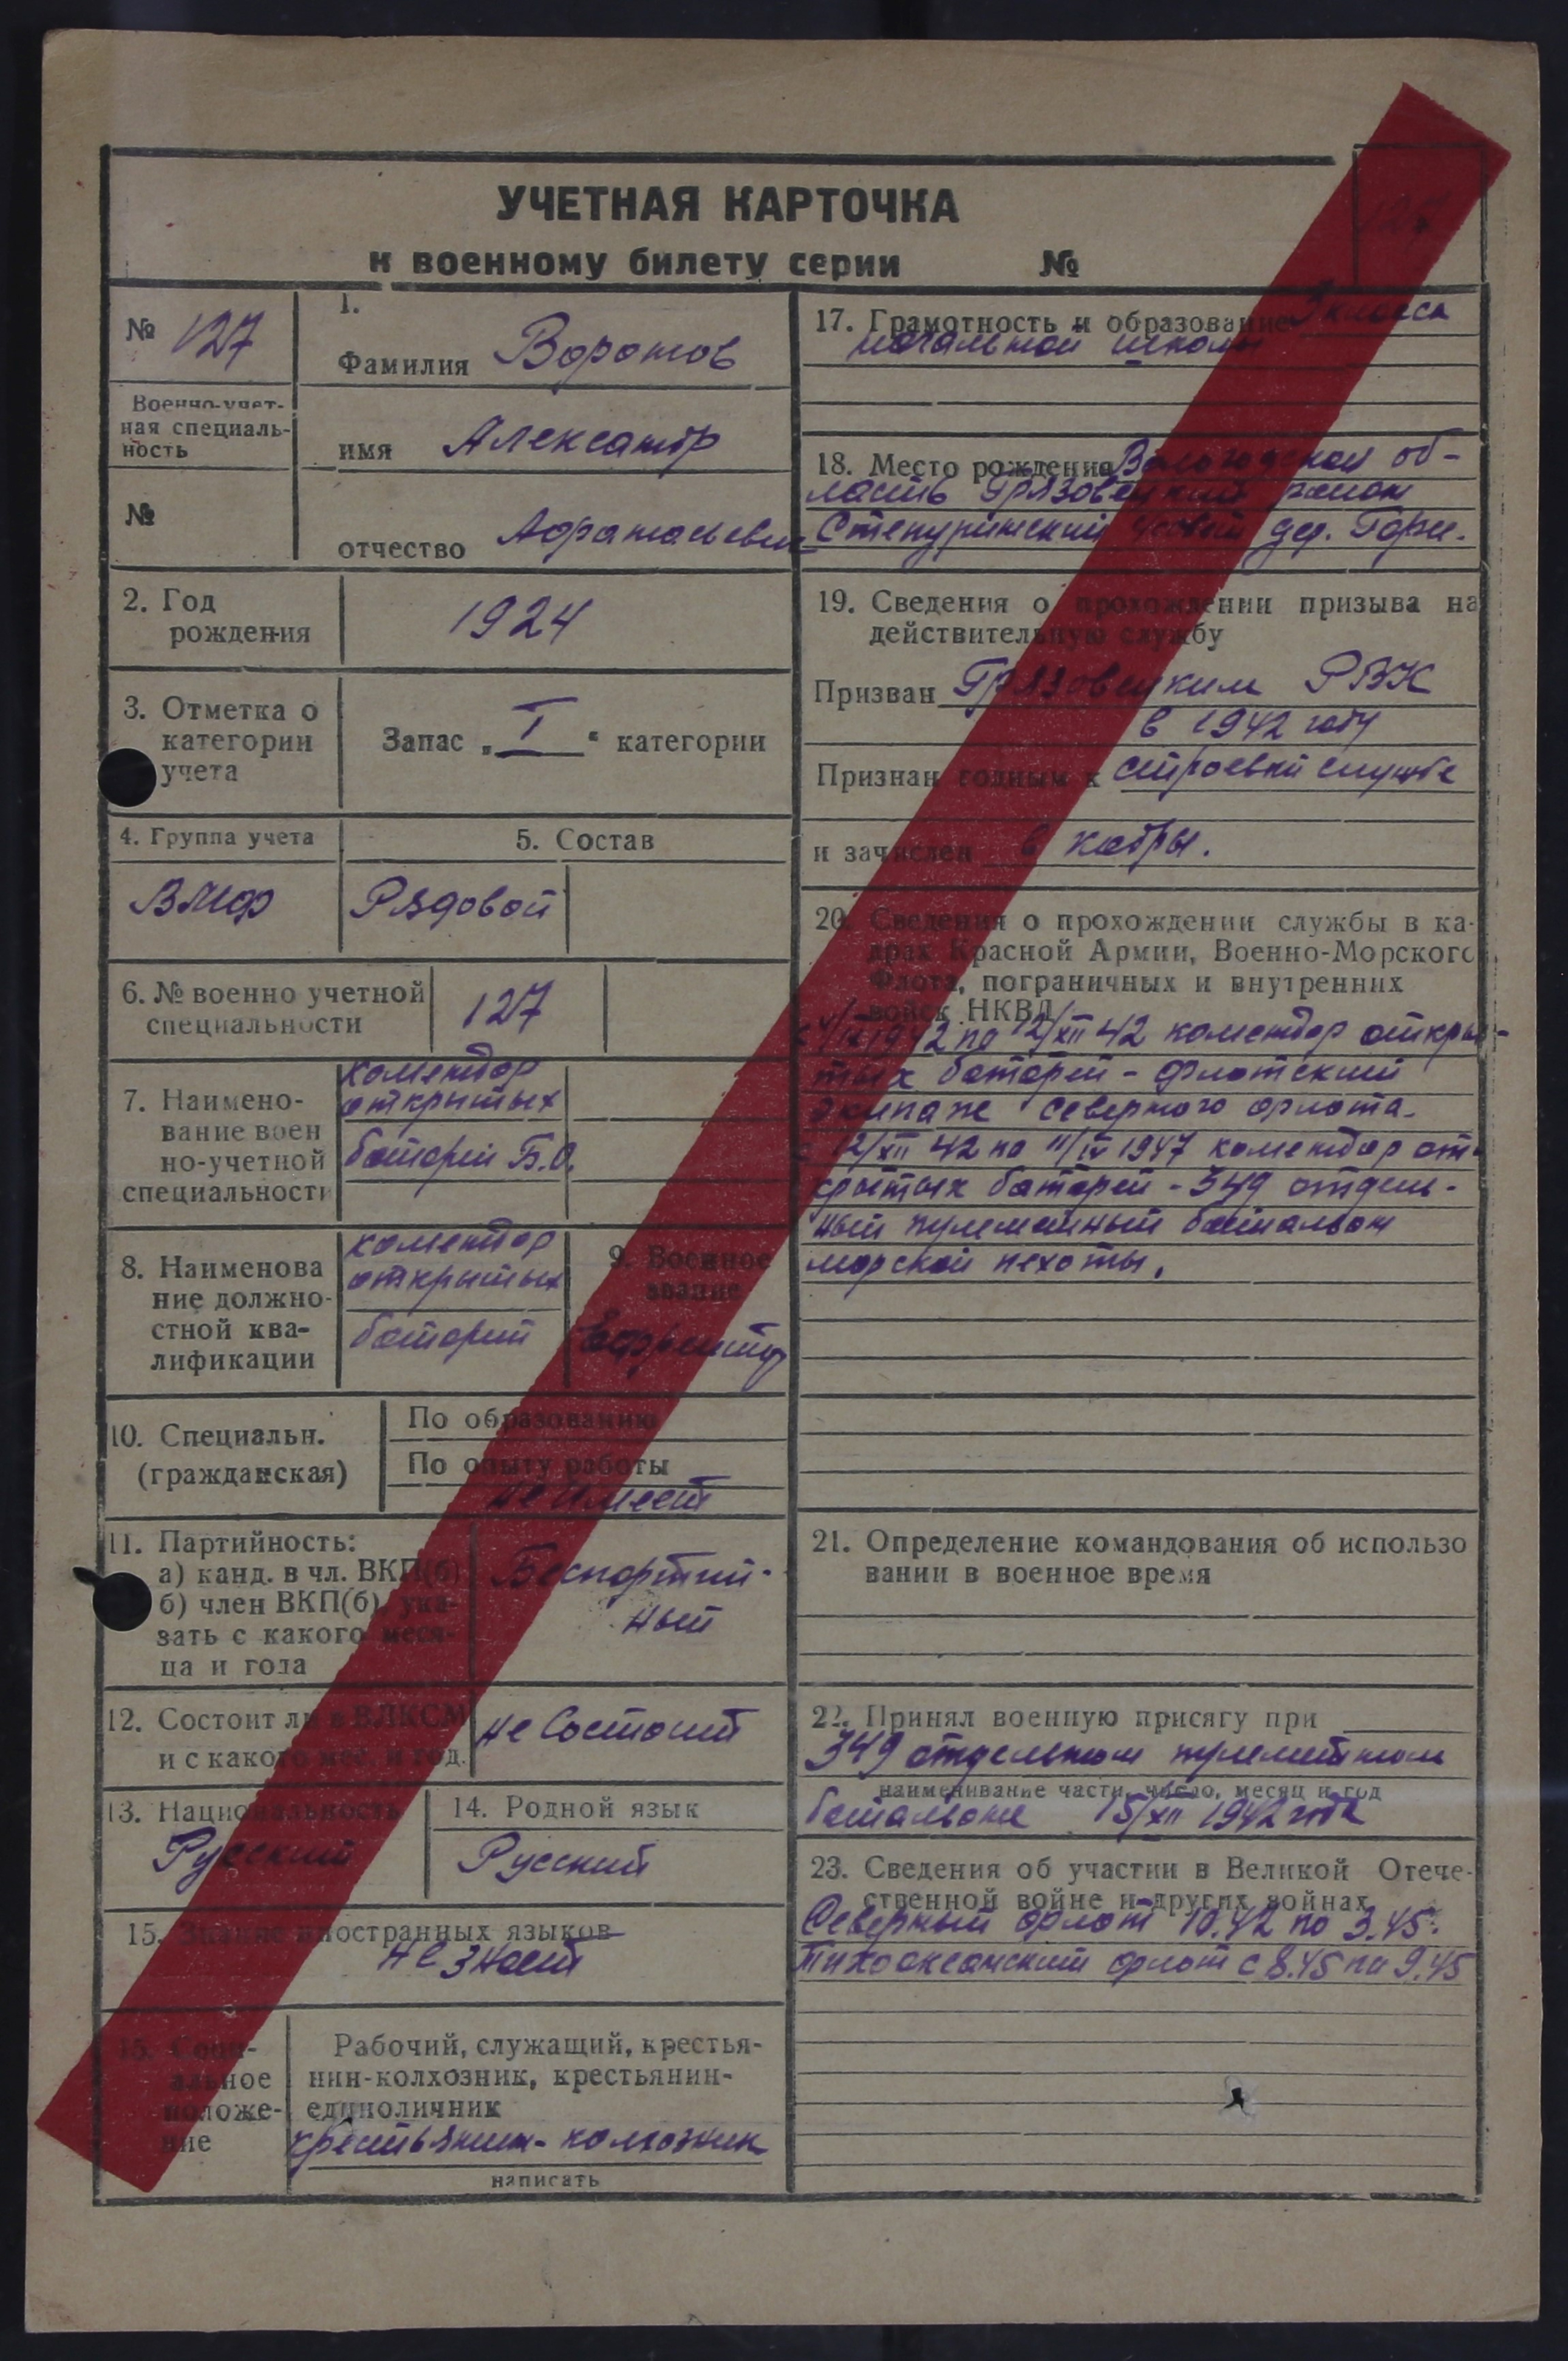 УЧЕТНАЯ КАРТОЧКА
к военному билету серии №
127
№ 127
Военно-учет-
ная специаль-
ность
№
1.
Фамилия Воронов
имя Александр
отчество Афанасьевич
2. Год
рождения
1924
3. Отметка о
категории
учета
Запас „ I “ категории
4. Группа учета
ВМФ
5. Состав
Рядовой
6. № военно учетной
специальности
127
7. Наимено-
вание воен
но-учетной
специальности
комендор
открытых
батарей Б.О.
8. Наименова
ние должно-
стной ква-
лификации
комендор
открытых
батарей
9. Военное
звание
Ефрейтор
10. Специальн.
(гражданская)
По образованию
По опыту работы
не имеет
11. Партийность:
а) канд. в чл. ВКП(б)
б) член ВКП(б), ука-
зать с какого меся-
ца и года
Беспартий-
ный
12. Состоит ли в ВЛКСМ
и с какого мес. и год.
не состоит
13. Национальность
Русский
14. Родной язык
Русский
15. Знание иностранных языков
не знает
15. Соци-
альное
положе-
ние
Рабочий, служащий, крестья-
нин-колхозник, крестьянин-
единоличник
крестьянин-колхозник
написать
17. Грамотность и образование 3 класса
начальной школы
18. Место рождения Вологодская об-
ласть Грязовецкий район
Степуринский с/совет дер.
19. Сведения о прохождении призыва на
действительную службу
Призван Грязовецким РВК
в 1942 году
Признан годным к строевой службе
и зачислен в кадры.
20. Сведения о прохождении службы в ка-
драх Красной Армии, Военно-Морского
Флота, пограничных и внутренних
войск НКВД
1942 по 12/XII 42 комендор откры-
тых батарей - Флотский
экипаж Северного флота.
с 12/XII 42 по 11/IV 1947 комендор от-
крытых батарей - 349 отдель-
ный пулеметный батальон
морской пехоты.
21. Определение командования об использо
вании в военное время
22. Принял военную присягу при
349 отдельном пулеметном
наименивание части, число, месяц и год
батальоне 15/XII 1942 года
23. Сведения об участии в Великой Отече-
ственной войне и других войнах
Северный флот 10.42 по 3.45.
Тихоокеанский флот с 8.45 по 9.45